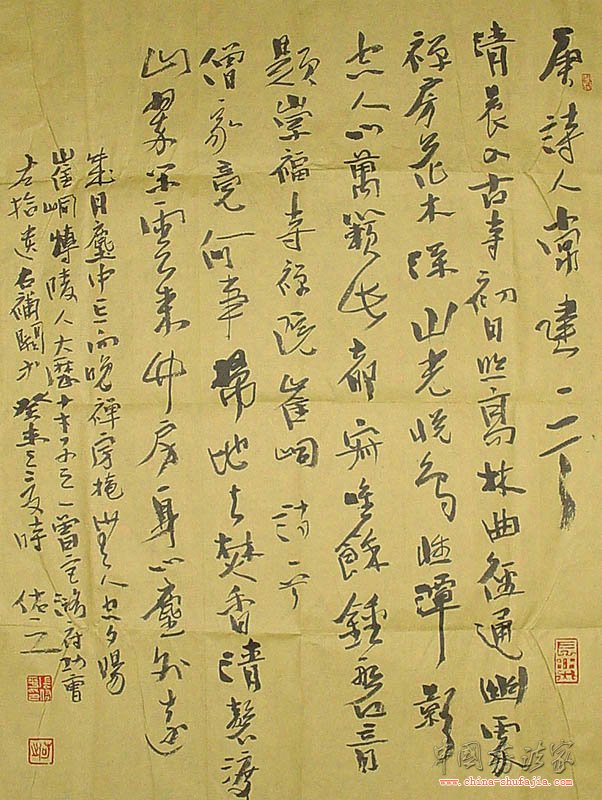 唐詩人常建一首
清晨入古寺初日照高林曲徑通幽處
禪房花木深山光悅鳥性潭影
空人心萬籟此都寂唯餘鐘磬音
題崇福寺禪院崔峒詩一首
僧家竟何事掃地與焚香清磬渡
山翠閑雲來竹房身心塵外遠
歲月塵中忘向晚禪房掩無人空夕陽
崔峒博陵人大曆十才子之一曾官潞府功曹
左拾遺右補闕 癸未之夏時 佑之
中國書法家
www.china-shufajia.com